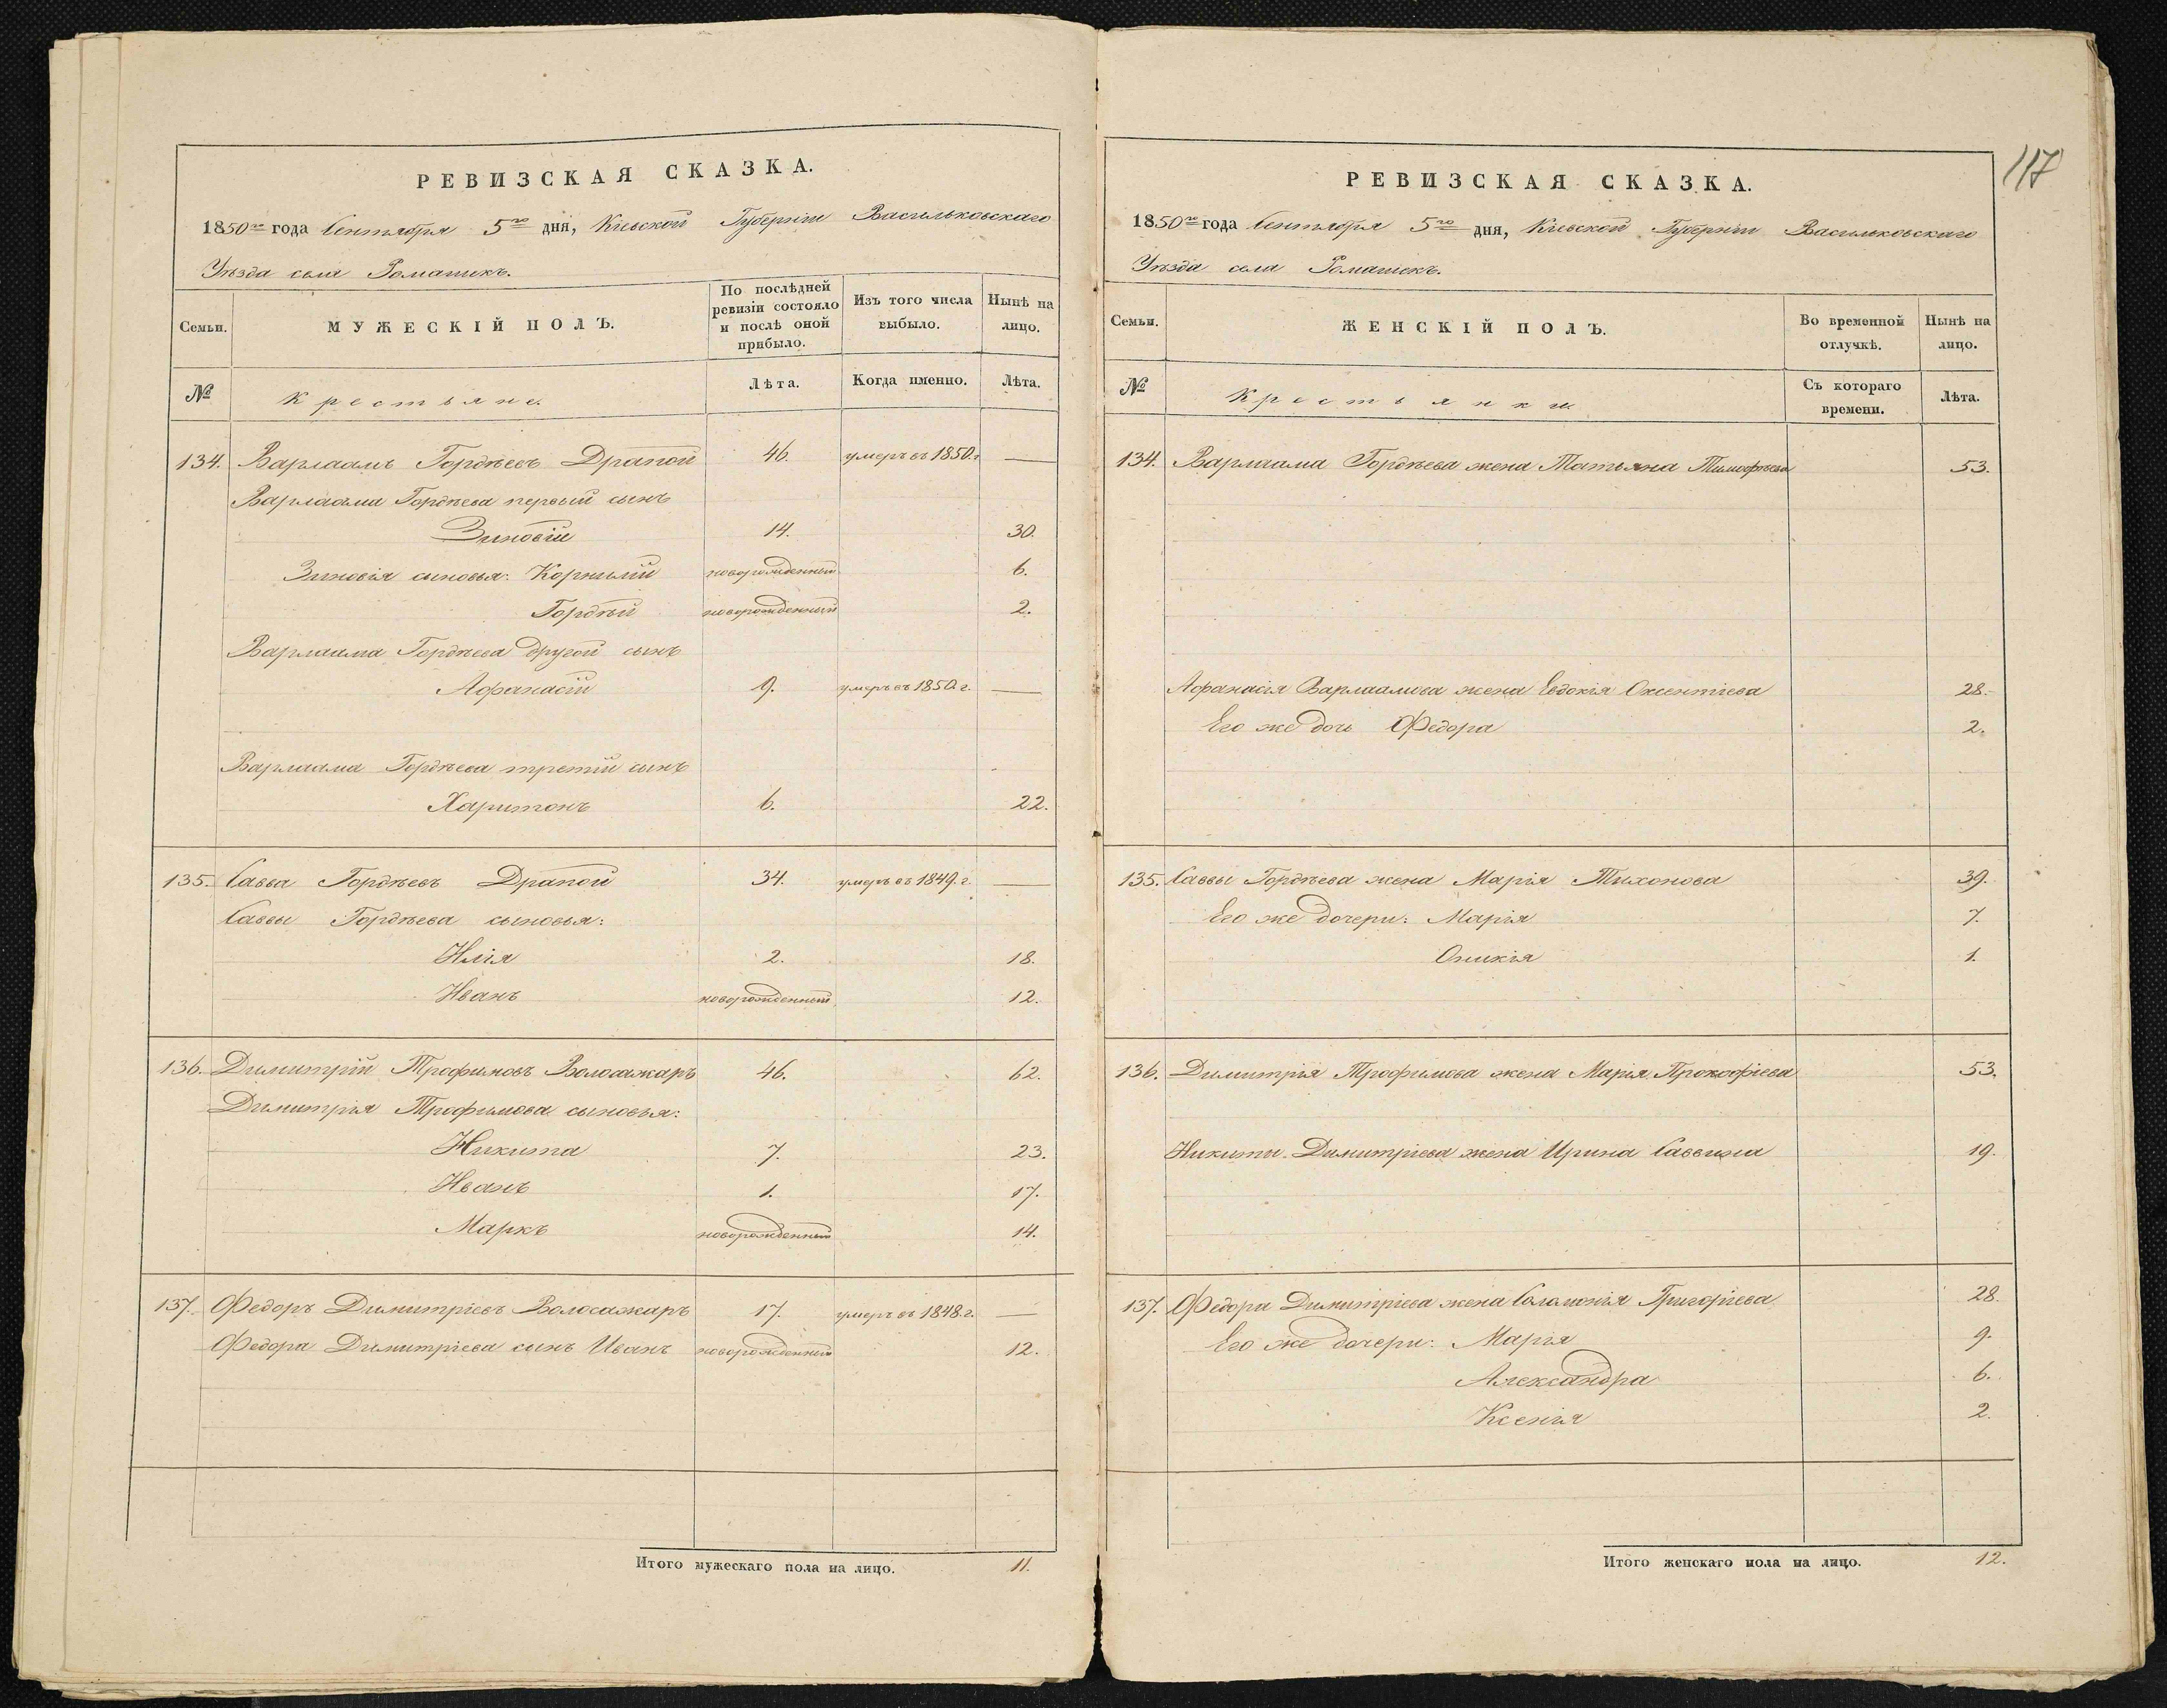 РЕВИЗСКАЯ СКАЗКА.
1850го года Сентября 5го дня, Кіевской Губерніи Васильковскаго
Уѣзда села Ромашикъ.
Семьи.
МУЖЕСКІЙ ПОЛЪ.
По послѣдней ревизіи состояло и послѣ оной прибыло.
Изъ того числа выбыло.
Нынѣ на лицо.
№
Крестьяне.
Лѣта.
Когда именно.
Лѣта.
134. Варлаамъ Гордѣевъ Драпой 46. умеръ въ 1850.г —
Варлаама Гордѣева первый сынъ
Зиновій 14. 30.
Зиновія сыновья: Корнилій новорожденный 6.
Гордѣй новорожденный 2.
Варлаама Гордѣева другой сынъ
Афанасій 9. умеръ въ 1850. г. —
Варлаама Гордѣева третій сынъ
Харитонъ 6. 22.
135. Савва Гордѣевъ Драпой 34. умеръ въ 1849. г. —
Саввы Гордѣева сыновья:
Илія 2. 18.
Иванъ новорожденный 12.
136. Димитрій Трофимовъ Волосажаръ 46. 62.
Димитрія Трофимова сыновья:
Никита 7. 23.
Иванъ 1. 17.
Маркъ новорожденный 14.
137. Федоръ Димитріевъ Волосажаръ 17. умеръ въ 1848. г. —
Федора Димитріева сынъ Иванъ новорожденный 12.
Итого мужескаго пола на лицо. 11.
117
РЕВИЗСКАЯ СКАЗКА.
1850го года Сентября 5го дня, Кіевской Губерніи Васильковскаго
Уѣзда села Ромашекъ.
Семьи.
ЖЕНСКІЙ ПОЛЪ.
Во временной отлучкѣ.
Нынѣ на лицо.
№
Крестьянки
Съ котораго времени.
Лѣта.
134. Варлаама Гордѣева жена Татьяна Тимофѣева 53.
Афанасія Варлаамова жена Евдокія Оксентіева 28.
Его же дочь Федора 2.
135. Саввы Гордѣева жена Марія Тихонова 39.
Его же дочери: Марія 7.
Оникія 1.
136. Димитрія Трофимова жена Марія Прокофіева 53.
Никиты Димитріева жена Ирина Саввина 19.
137. Федора Димитріева жена Соломонія Григоріева 28.
Его же дочери: Марія 9.
Александра 6.
Ксенія 2.
Итого женскаго пола на лицо. 12.